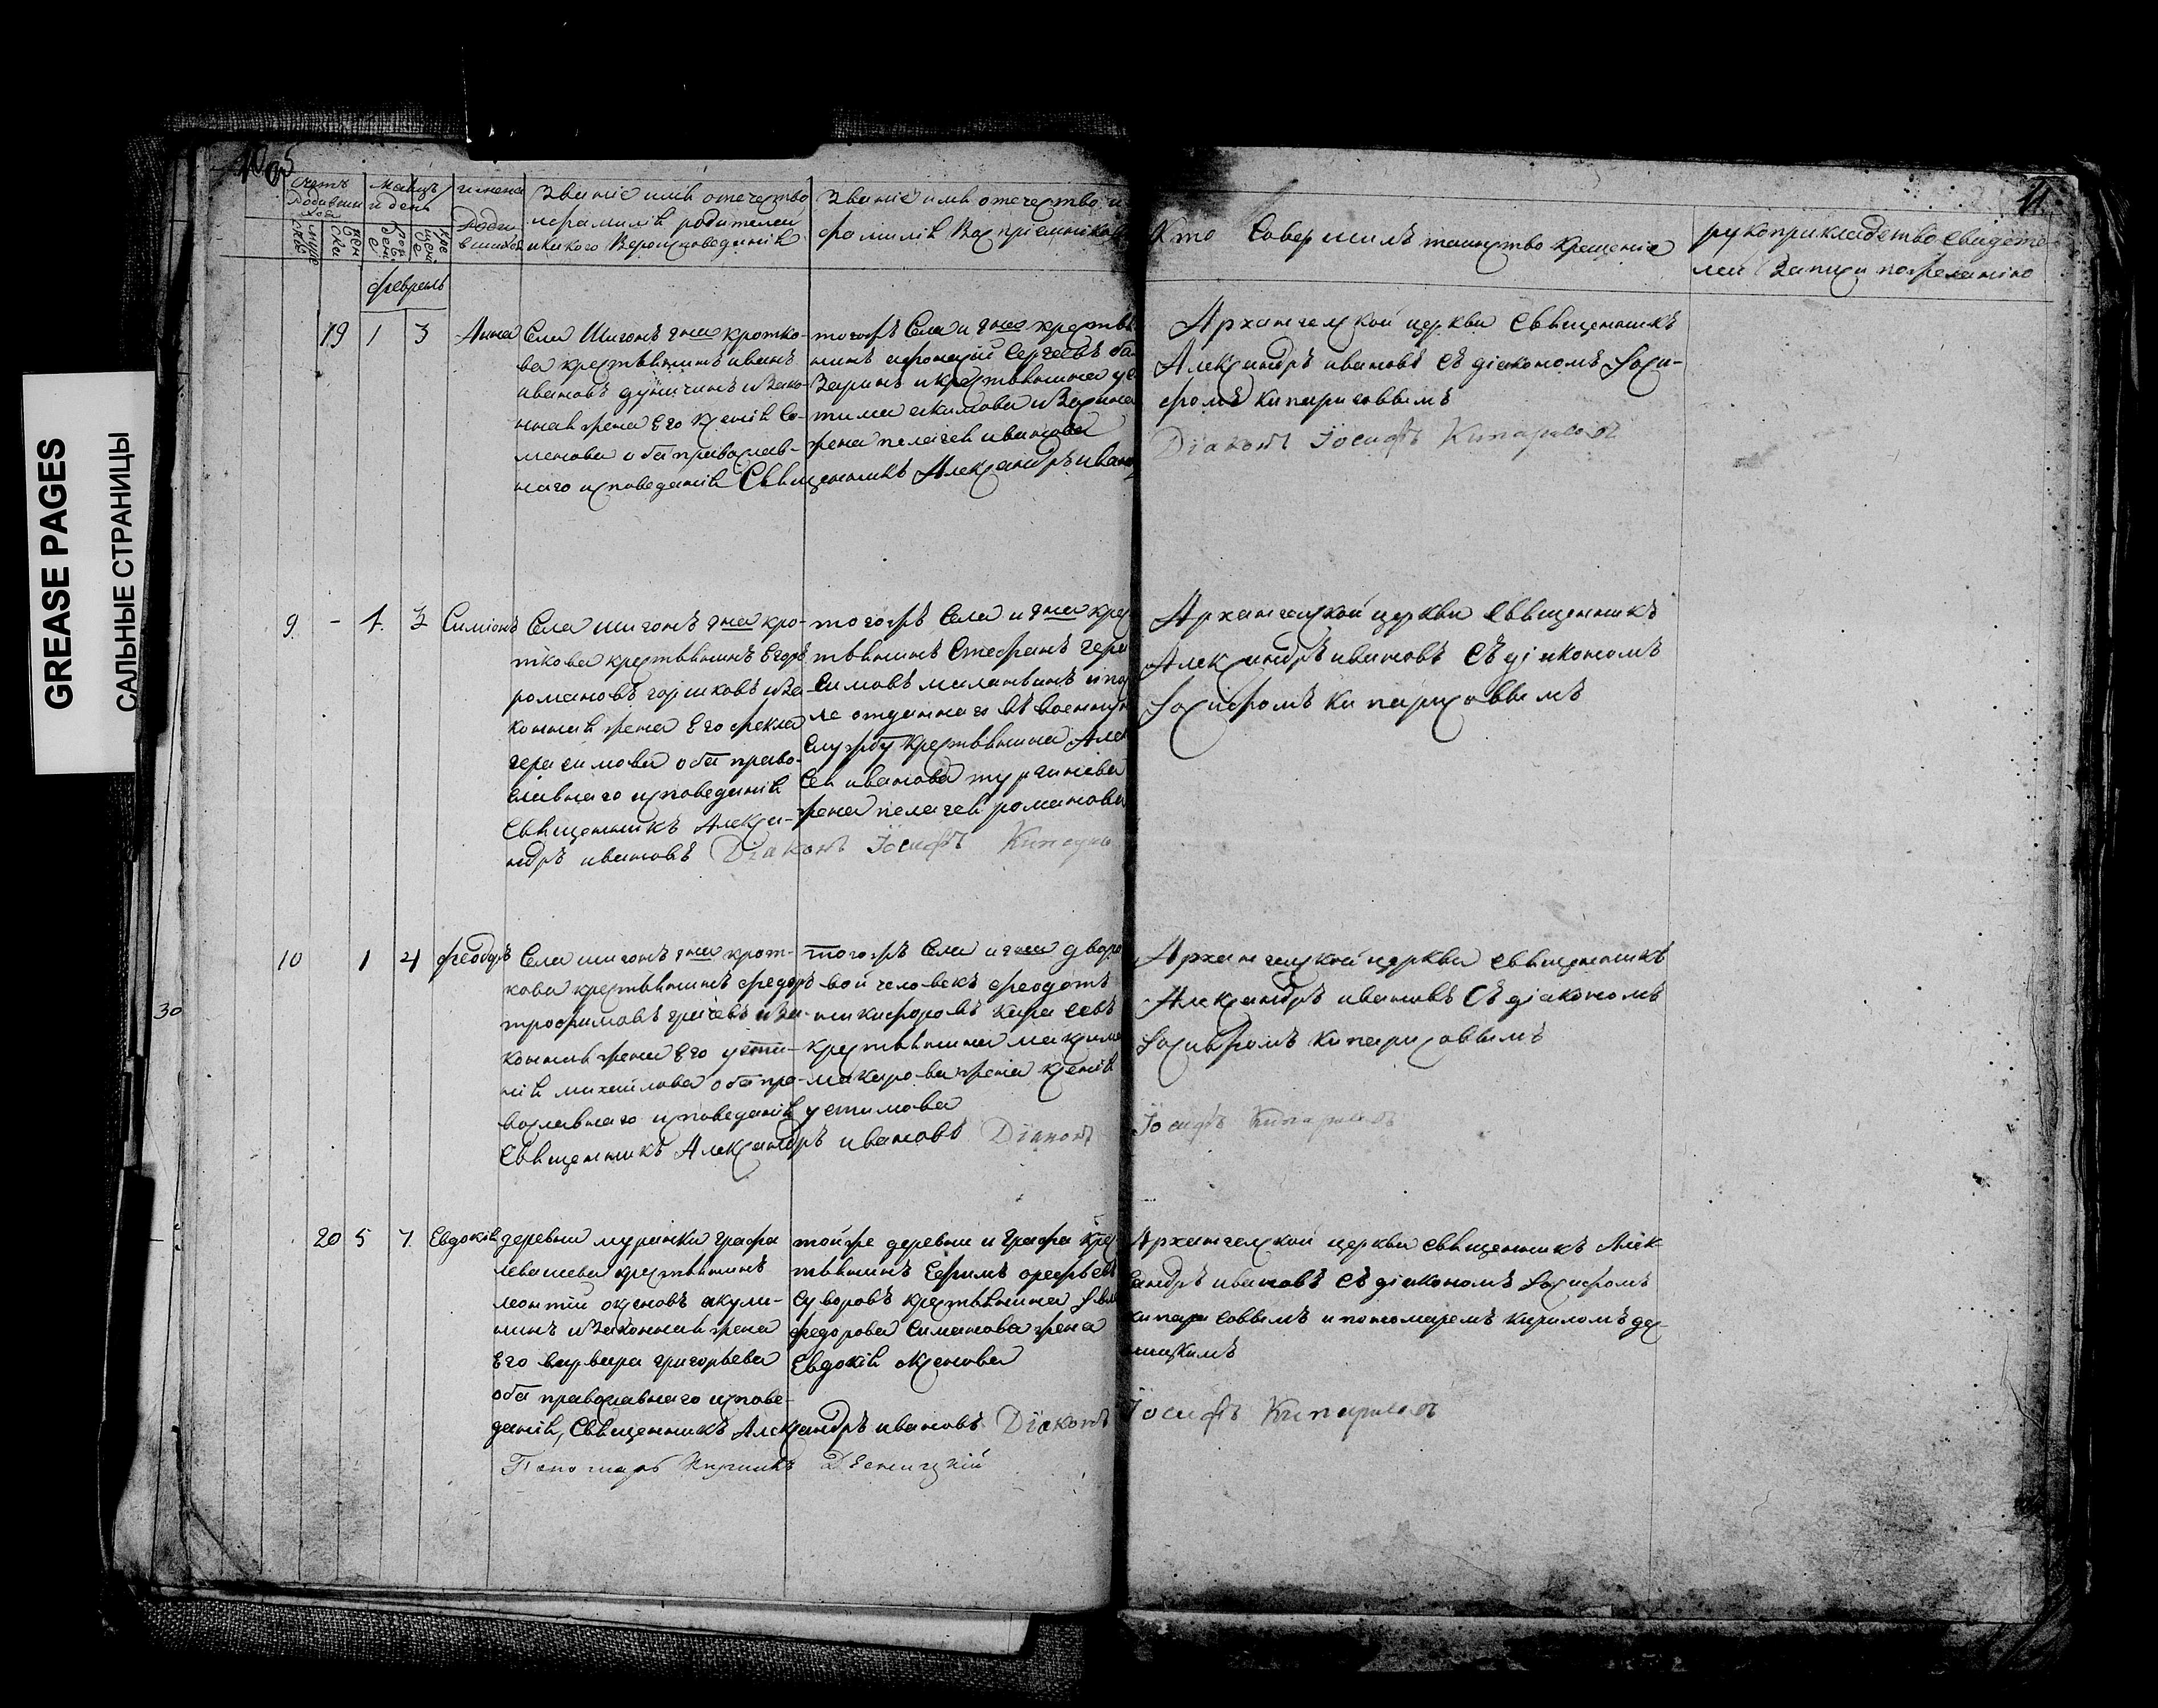 GREASE PAGES
САЛЬНЫЕ СТРАНИЦЫ
11
Счетъ
родивши
хся
мѣсяцъ
и день
имена
роди
вшихся
Званіе имя отечество
и фамилія родителей
и какого Вероисповеданія
Званіе имя отечество и
фамилія Воспріемников
Кто Совершилъ таинство крещенія
рукоприкладство свидете
лей Записи по желанію
февраль
19 1 3 Анна
Села Шигонъ гна кротко-
ва крестьянинъ иванъ
ивановъ и Зако-
нная жена Его ксенія Се-
менова оба православ-
наго исповеданія Священникъ Александръ иванов
тогожъ Села и гна крестья
нинъ Сергеевъ
и крестьянина
жена пелагея иванова
Архангелской церкви Священникъ
Александръ ивановъ Съ діакономъ Іоси-
фомъ кипарисовымъ
Діаконъ Іосифъ Кипарисовъ
9 - 1 3 Симіонъ
Села шигонъ гна кро-
ткова крестьянинъ Егоръ
романовъ горшковъ и За-
конная жена Его фекла
герасимова оба право-
славнаго исповеданія
Священникъ Алекса-
ндръ ивановъ Діаконъ Іосифъ Кипарис
тогожъ Села и гна крес
тьянинъ Стефанъ гера
симовъ и по
ле отданнаго въ военную
Службу крестьянина Алек
Сея иванова
жена пелагея романова
Архангелской церкви Священникъ
Александръ ивановъ Съ діакономъ
Іосифомъ Кипарисовымъ
10 1 4 феодоръ
Села шигонъ гна крот-
кова крестьянинъ федоръ
трофимовъ и За-
конная жена Его усти-
нія михайлова оба пра-
вославнаго исповеданія
Священникъ Александръ ивановъ Діаконъ
тогожъ Села и гна дворо
вой человекъ феодотъ
никифоровъ
крестьянина максима
макарова жена ксенія
устимова
Архангелской церкви священникъ
Александръ ивановъ Съ діакономъ
Іосифомъ кипарисовымъ
Іосифъ Кипарисовъ
30
20 5 7 Евдокія
деревни муранки графа
левашева крестьянинъ
леонтій акули-
нинъ и Законная жена
Его варвара григорьева
оба православнаго испове-
данія, Священникъ Александръ ивановъ Діаконъ
Пономарь Кирилъ Десницкій
тойже деревни и Графа крес
тьянинъ Ефимъ
Суворовъ крестьянина
федорова Симанова жена
Евдокія
Архангелской церкви священникъ Алек
сандръ ивановъ Съ діакономъ Іосифомъ
кипарисовымъ и пономаремъ кириломъ дес-
ницкимъ
Іосифъ Кипарисовъ